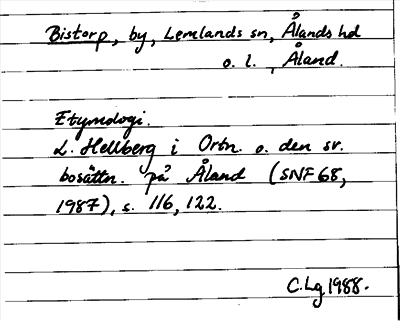 Bistorp, by, Lemlands sn, Ålands hd
o. l., Åland.
Etymologi.
L. Hellberg i Ortn. o. den sv.
bosättn. på Åland (SNF 68,
1987), s. 116, 122.
C.Lg 1988.